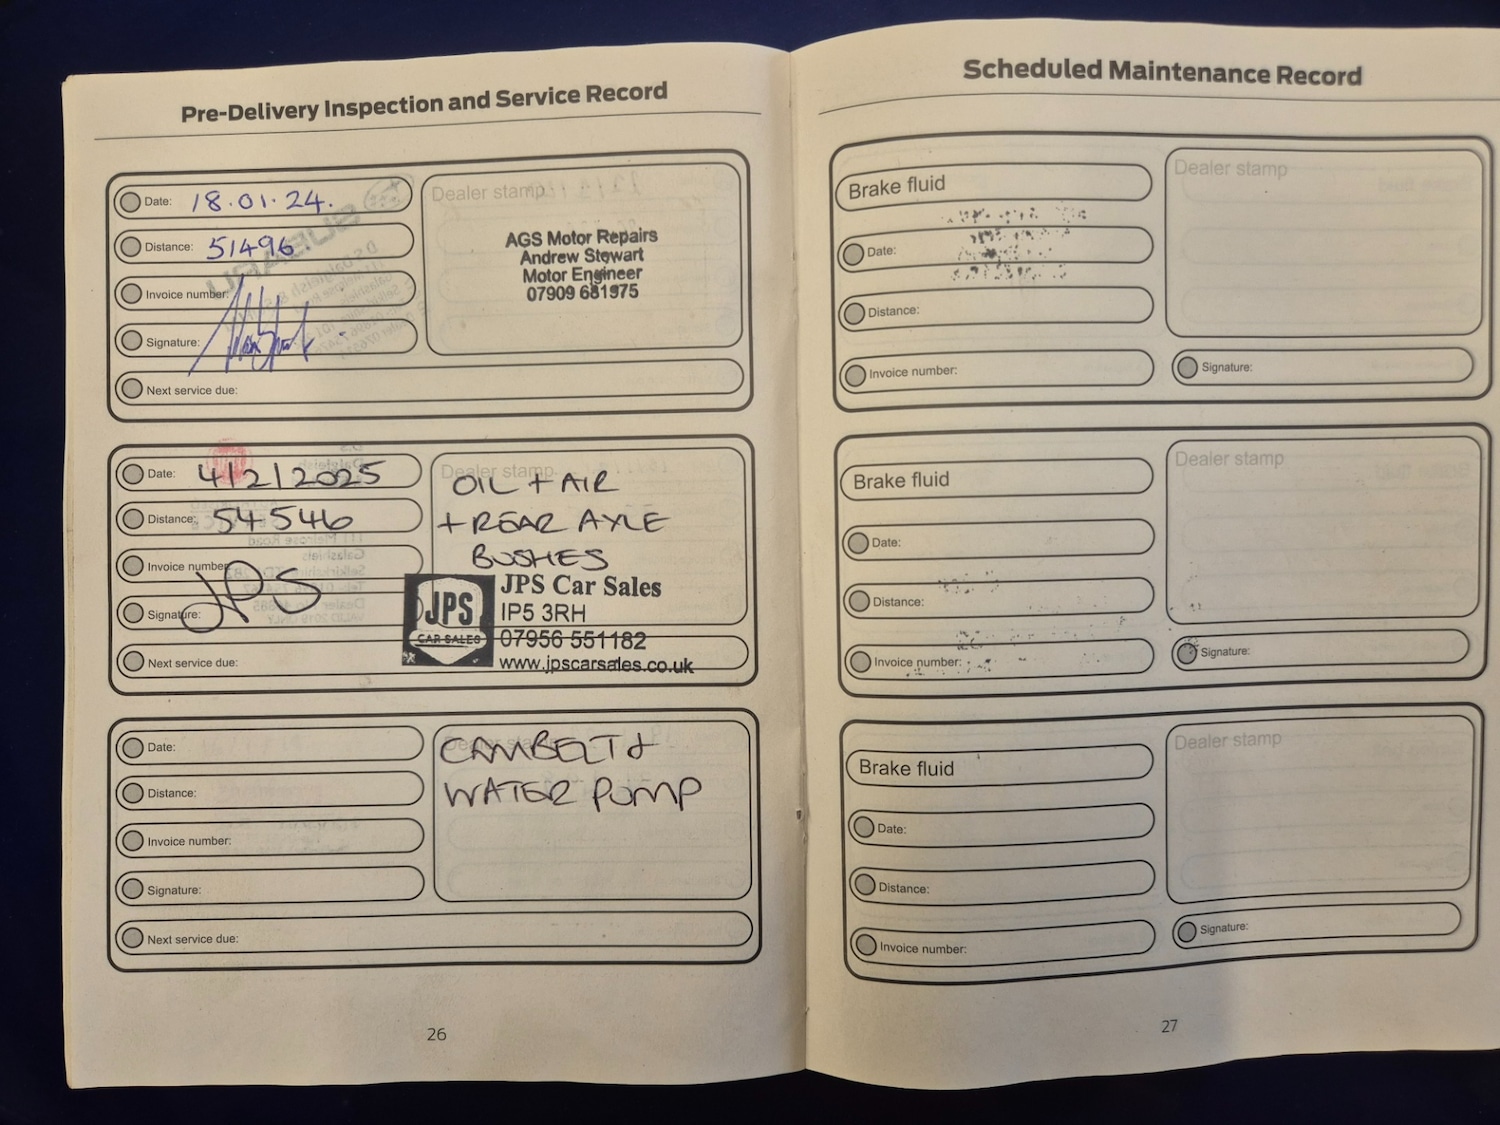 Pre-Delivery Inspection and Service Record
Date: 18.01.24.
Distance: 51496
Invoice number:
Signature:
Next service due:
Dealer stamp
AGS Motor Repairs
Andrew Stewart
Motor Engineer
07909 681975
Date: 4/2/2025
Distance: 54546
Invoice number
Signature: JPS
Next service due:
Dealer stamp
OIL + AIR
+ REAR AXLE
BUSHES
JPS
CAR SALES
JPS Car Sales
IP5 3RH
07956 551182
www.jpscarsales.co.uk
Date:
Distance:
Invoice number:
Signature:
Next service due:
Dealer stamp
CAMBELT &
WATER PUMP
26
Scheduled Maintenance Record
Brake fluid
Date:
Distance:
Invoice number:
Dealer stamp
Signature:
Brake fluid
Date:
Distance:
Invoice number:
Dealer stamp
Signature:
Brake fluid
Date:
Distance:
Invoice number:
Dealer stamp
Signature:
27